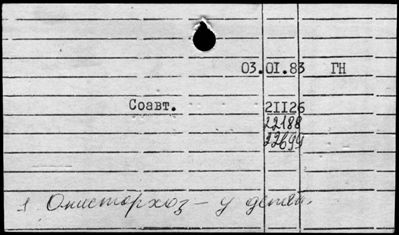 03.01.83 ГН
Соавт. 21126
22188
22694
1 Описторхоз - у детей.